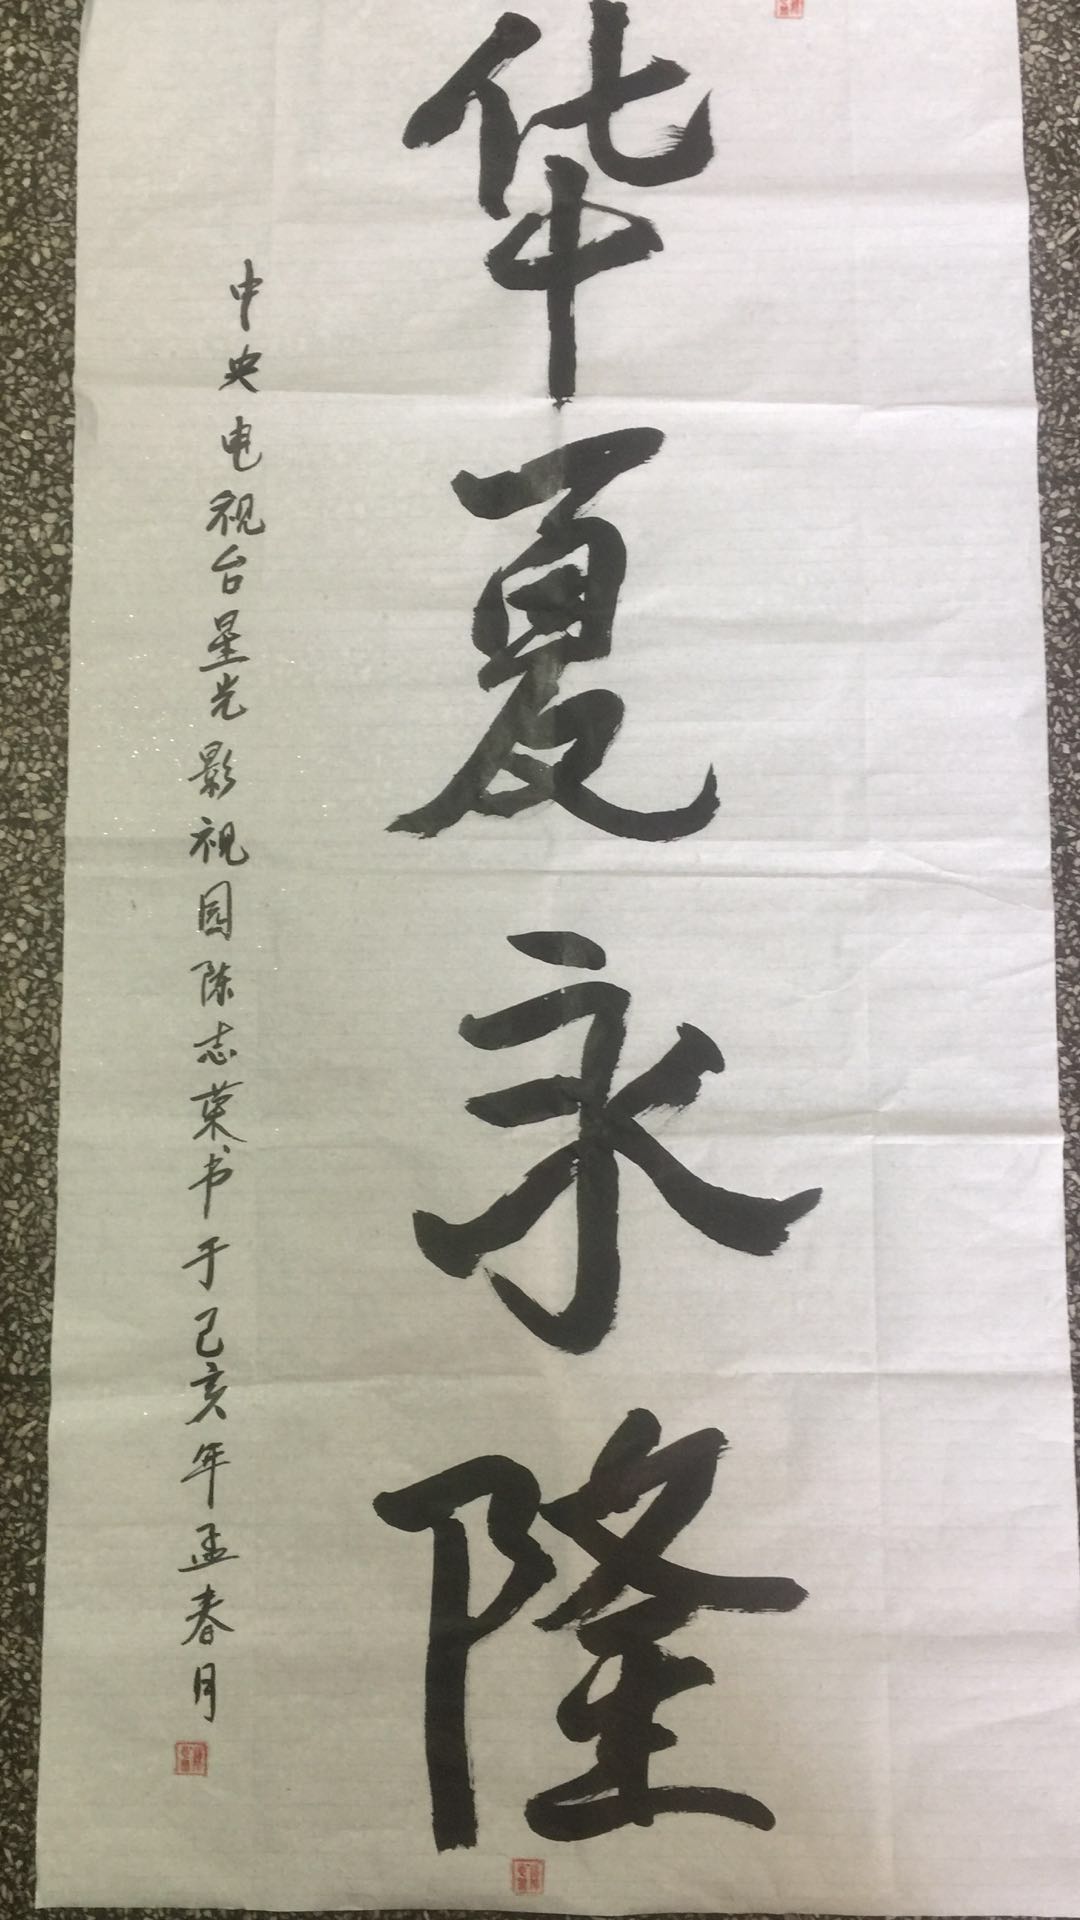 华夏永隆
中央电视台星光影视园陈志荣书于己亥年孟春月